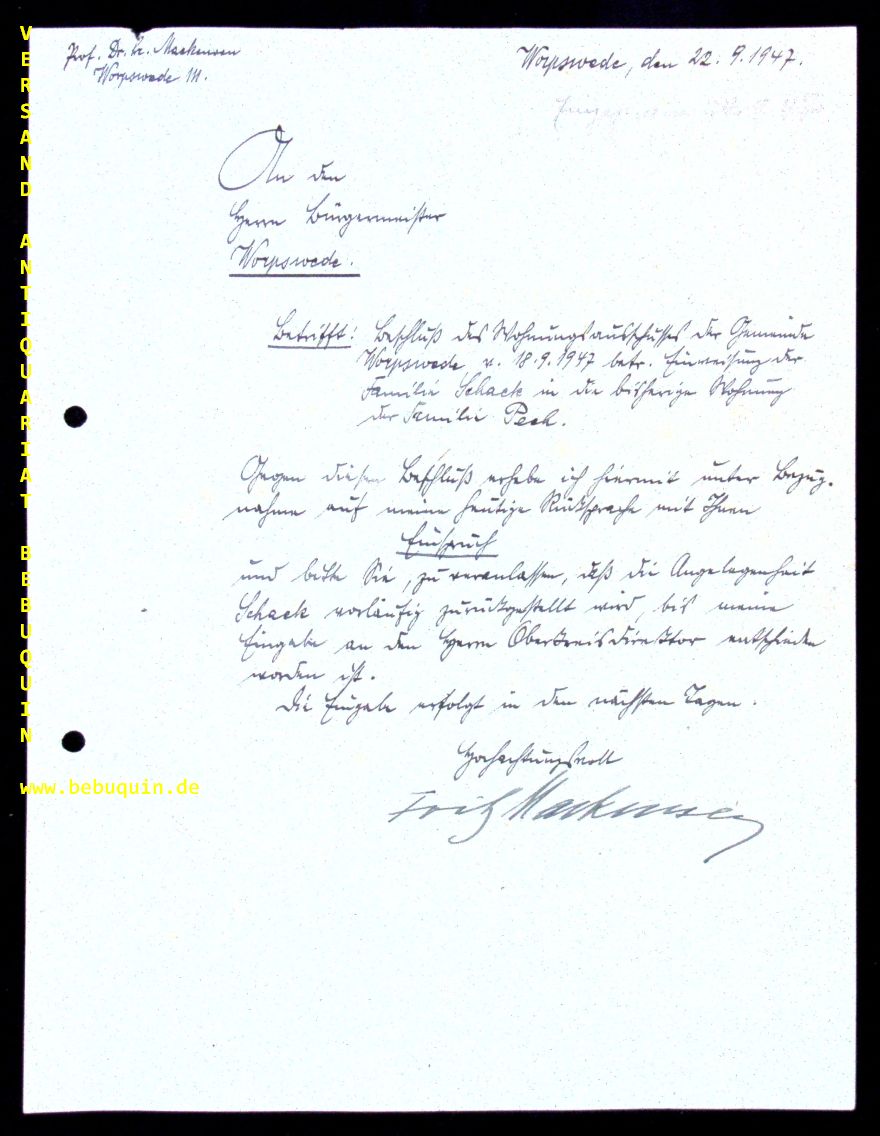 Prof. Dr. h. Mackensen
Worpswede 111.
Worpswede, den 22. 9. 1947.
An den
Herrn Bürgermeister
Worpswede.
Betrifft: Beschluß des Wohnungsausschusses der Gemeinde
Worpswede v. 18.9.1947 betr. Einweisung der
Familie Schack in die bisherige Wohnung
der Familie Pech.
Gegen diesen Beschluß erhebe ich hiermit unter Bezug-
nahme auf meine heutige Rücksprache mit Ihnen
Einspruch
und bitte Sie, zu veranlassen, daß die Angelegenheit
Schack vorläufig zurückgestellt wird, bis meine
Eingabe an den Herrn Oberkreisdirektor entschieden
worden ist.
Die Eingabe erfolgt in den nächsten Tagen.
Hochachtungsvoll
Fritz Mackensen
VERSAND ANTIQUARIAT BEBUQUIN
www.bebuquin.de